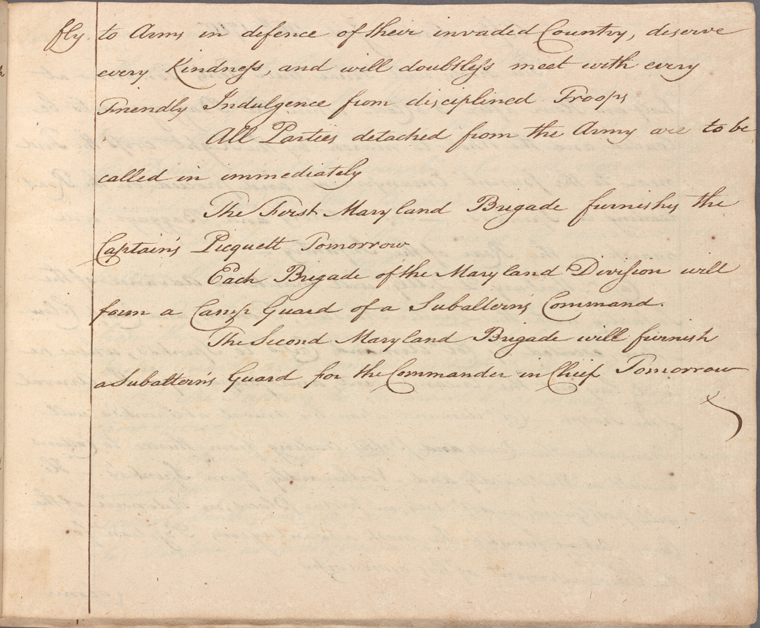 fly to Arms in defence of their invaded Country, deserve
every Kindness, and will doubtless meet with every
Friendly Indulgence from disciplined Troops
All Parties detached from the Army are to be
called in immediately
The First Maryland Brigade furnishes the
Captain's Picquett Tomorrow
Each Brigade of the Maryland Division will
form a Camp Guard of a Subalterns Command.
The Second Maryland Brigade will furnish
a Subaltern's Guard for the Commander in Chief Tomorrow